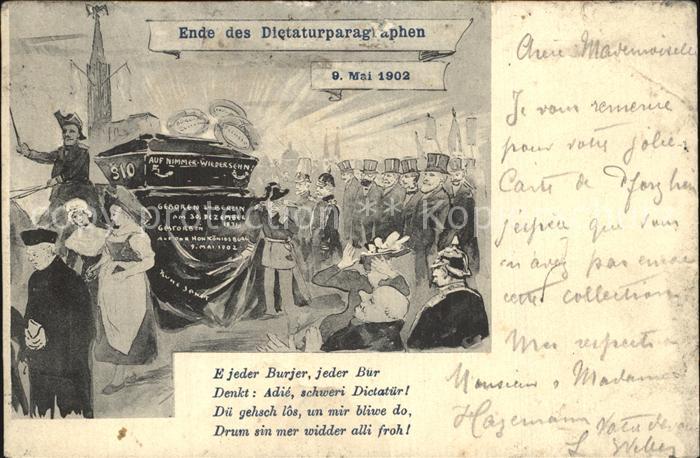 Ende des Dictaturparagraphen
9. Mai 1902
§ 10
AUF NIMMER-WIEDERSEHN
GEBOREN ZU BERLIN
AM 30. DEZEMBER
1871
GESTORBEN
AUF DER HOHKÖNIGSBURG
9. MAI 1902
E jeder Burjer, jeder Bur
Denkt: Adié, schweri Dictatür!
Dü gehsch lôs, un mir bliwe do,
Drum sin mer widder alli froh!
Mademoiselle
Je vous remercie
pour votre jolie
Carte de Pforzheim
j'espère que vous
n'avez pas encore
cette collection
Mes respects
Monsieur & Madame
Hagemann